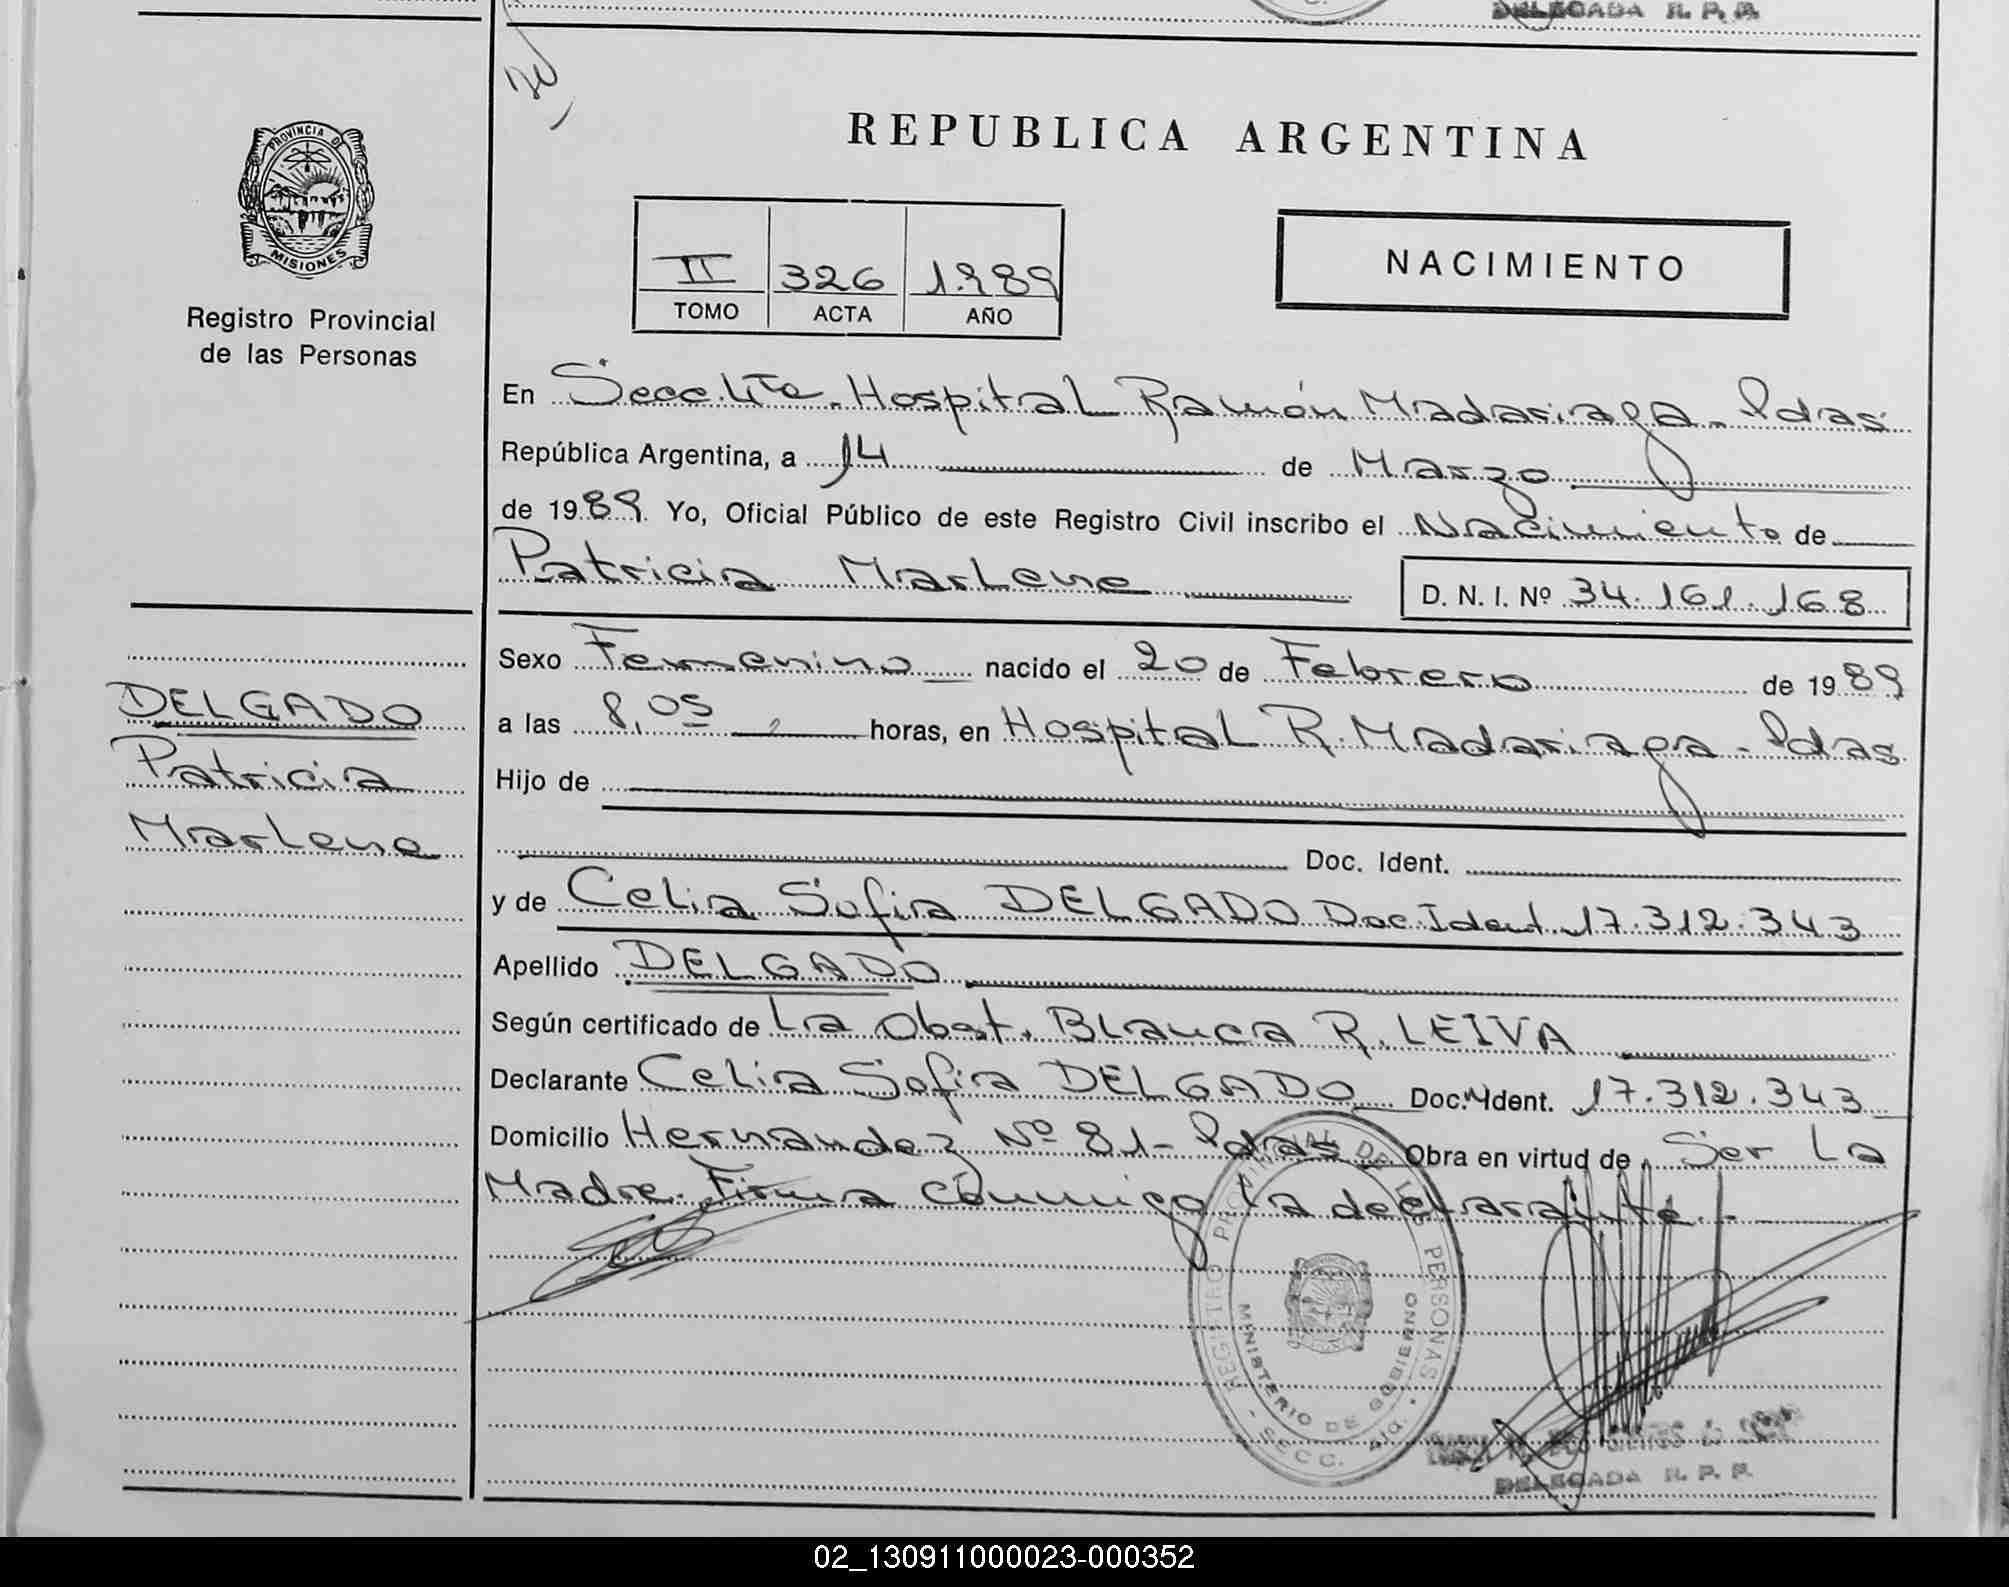 DELEGADA R. P. P.
REPUBLICA ARGENTINA
PROVINCIA DE
MISIONES
Registro Provincial
de las Personas
II 326 1.989
TOMO ACTA AÑO
NACIMIENTO
En Secc. 4ta. Hospital Ramón Madariaga - Pdas
República Argentina, a 14 de Marzo
de 1989. Yo, Oficial Público de este Registro Civil inscribo el Nacimiento de
Patricia Marlene D. N. I. Nº 34.161.168
DELGADO
Patricia
Marlene
Sexo Femenino nacido el 20 de Febrero de 1989
a las 8,05 horas, en Hospital R. Madariaga - Pdas
Hijo de
Doc. Ident.
y de Celia Sofia DELGADO Doc. Ident. 17.312.343
Apellido DELGADO
Según certificado de La Obst. Blanca R. LEIVA
Declarante Celia Sofia DELGADO Doc. Ident. 17.312.343
Domicilio Hernandez Nº 81 - Pdas Obra en virtud de Ser La
Madre. Firma conmigo la declarante. -
REGISTRO PROVINCIAL DE LAS PERSONAS
MINISTERIO DE GOBIERNO
SECC. 4ta.
DELEGADA R. P. P.
02_130911000023-000352